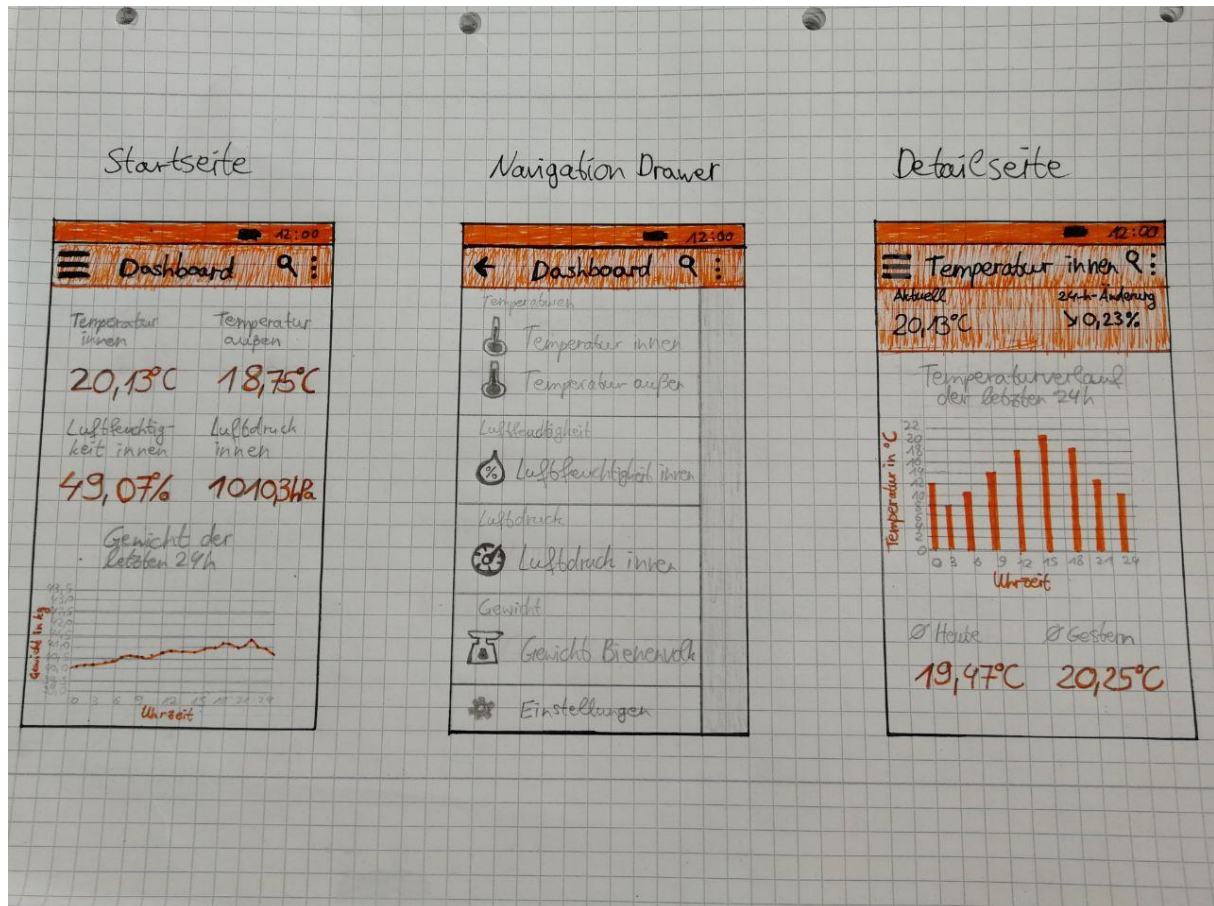 Startseite
12:00
Dashboard
Temperatur innen
Temperatur außen
20,13°C 18,75°C
Luftfeuchtig-
keit innen
Luftdruck
innen
49,07% 1010,3hPa
Gewicht der
letzten 24h
Gewicht in kg
0 3 6 9 12 15 18 21 24
Uhrzeit
Navigation Drawer
12:00
Dashboard
Temperaturen
Temperatur innen
Temperatur außen
Luftfeuchtigkeit
% Luftfeuchtigkeit innen
Luftdruck
Luftdruck innen
Gewicht
Gewicht Bienenvolk
Einstellungen
Detailseite
12:00
Temperatur innen
Aktuell 24-h-Änderung
20,13°C ↘0,23%
Temperaturverlauf
der letzten 24h
Temperatur in °C
22
20
18
16
14
12
10
8
6
4
2
0
0 3 6 9 12 15 18 21 24
Uhrzeit
Ø Heute Ø Gestern
19,47°C 20,25°C